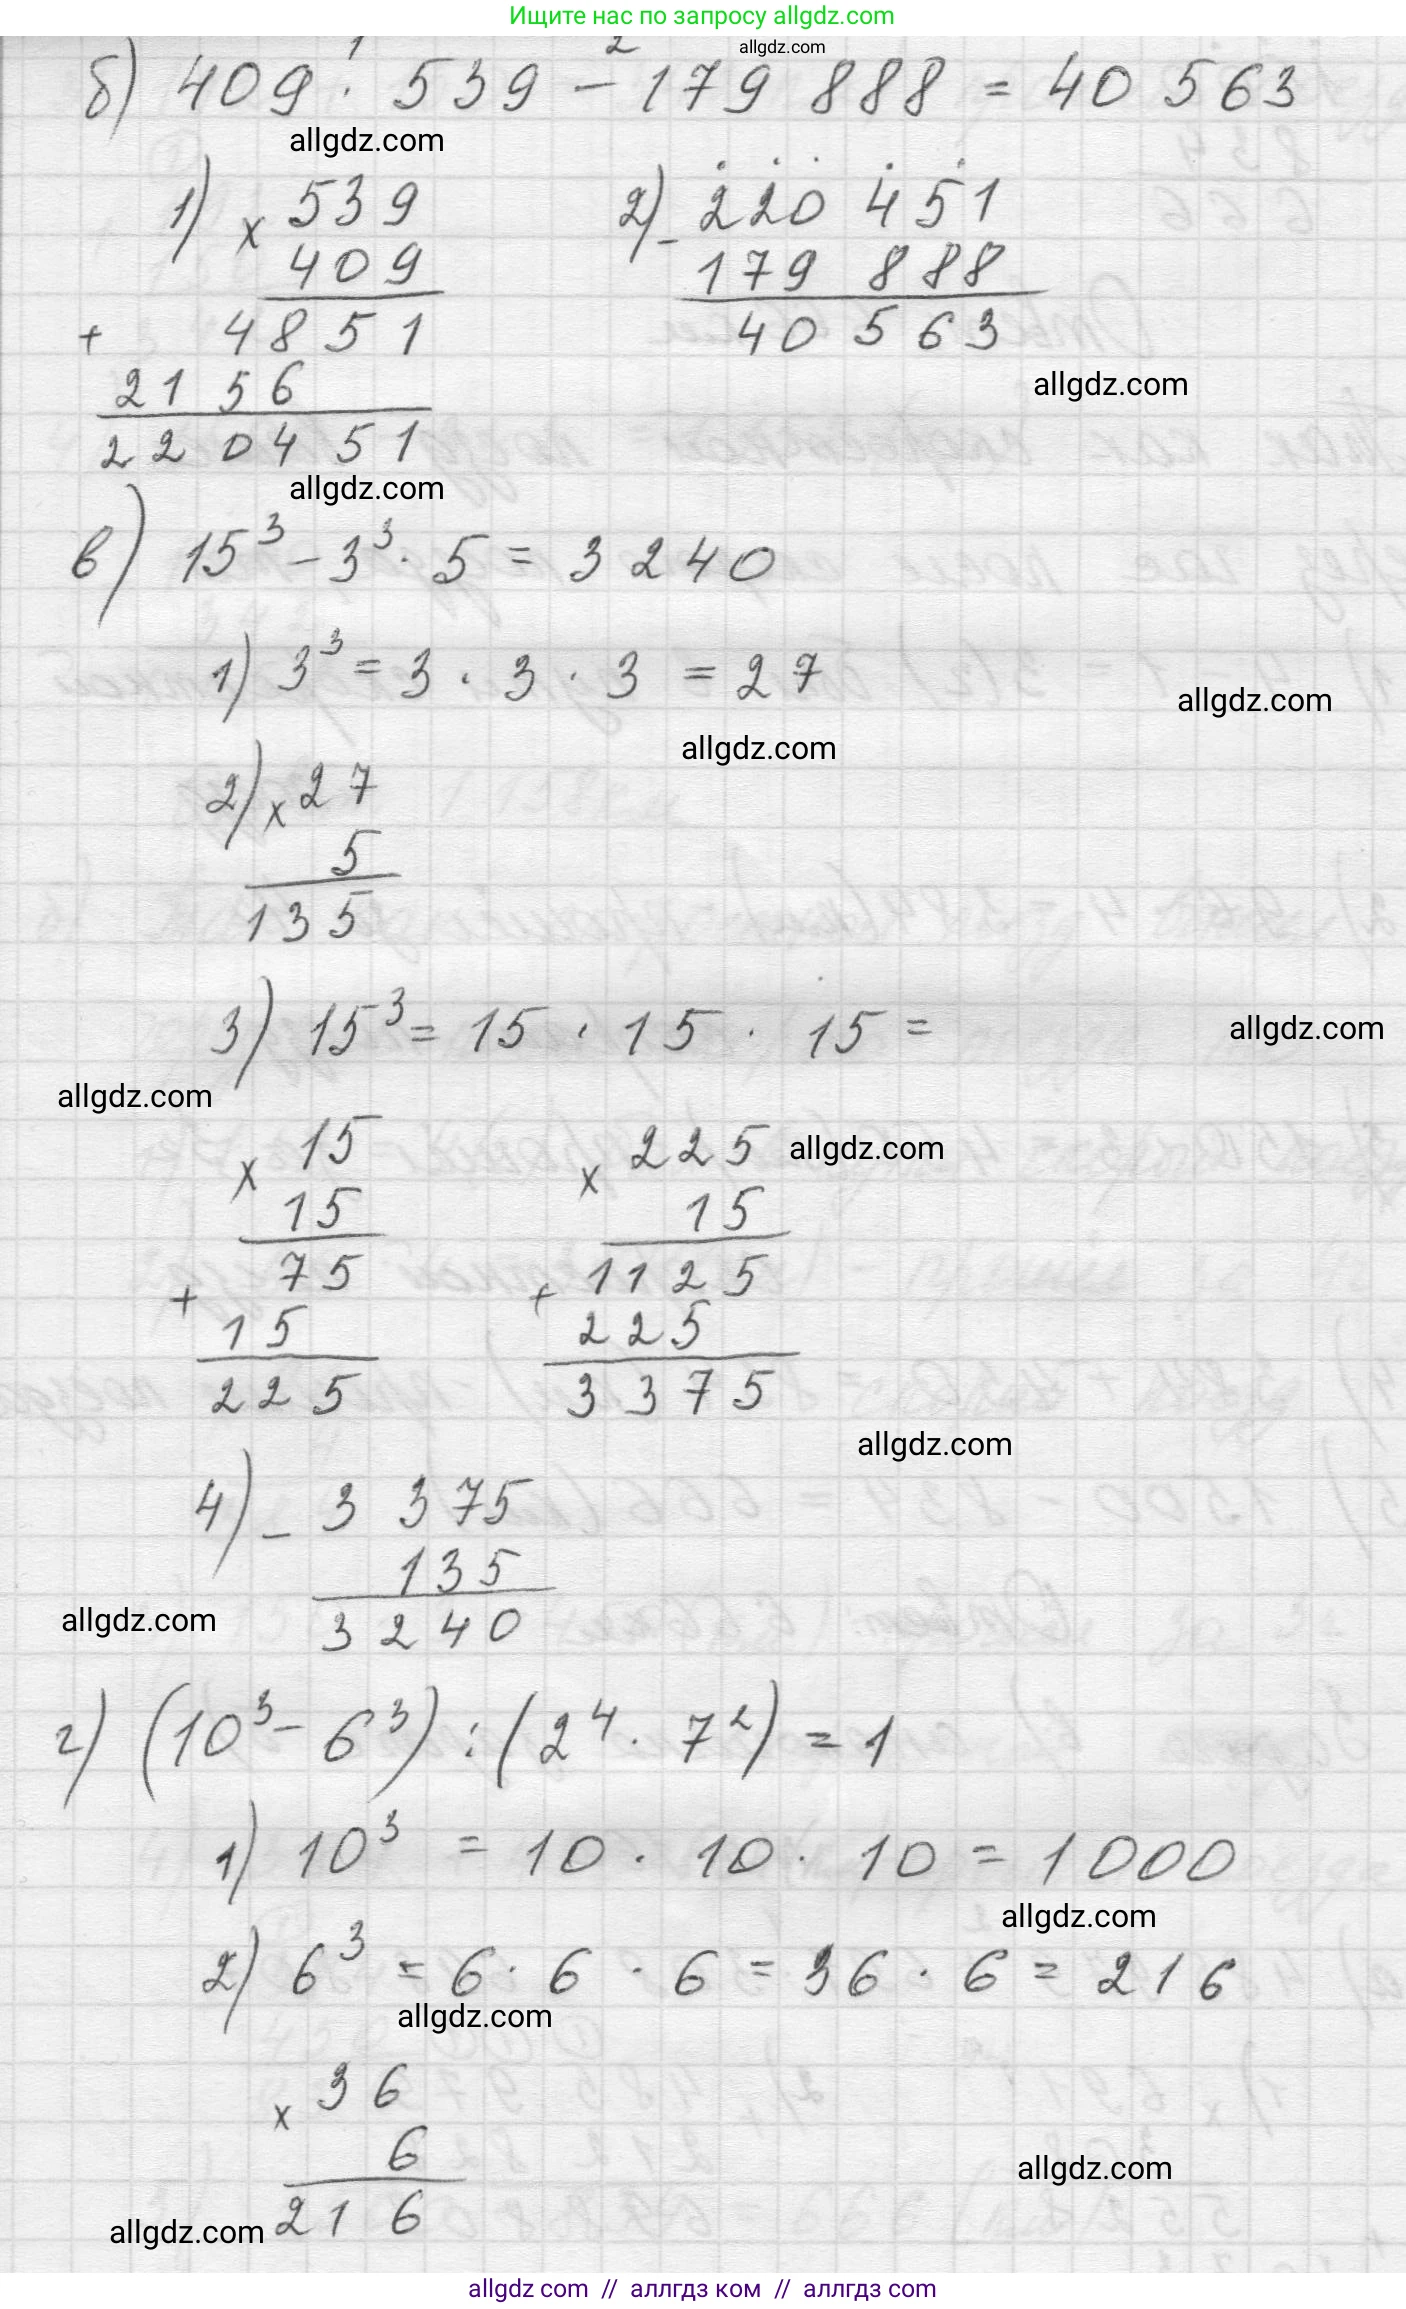 Ищите нас по запросу allgdz.com
allgdz.com
1 2
б) 409 · 539 - 179 888 = 40 563
allgdz.com
1) × 539 2) - 220 451
409 179 888
+ 4851 40 563
2156 allgdz.com
220451
allgdz.com
в) 15³ - 3³ · 5 = 3240
1) 3³ = 3 · 3 · 3 = 27
allgdz.com
allgdz.com
2) × 27
5
135
3) 15³ = 15 · 15 · 15 =
allgdz.com
allgdz.com
× 15 × 225 allgdz.com
15 15
+ 75 + 1125
15 225
225 3375
allgdz.com
4) - 3 375
135
allgdz.com
3 240
г) (10³ - 6³) : (2⁴ · 7²) = 1
1) 10³ = 10 · 10 · 10 = 1000
allgdz.com
2) 6³ = 6 · 6 · 6 = 36 · 6 = 216
allgdz.com
× 36
6
allgdz.com
216
allgdz.com
allgdz com // аллгдз ком // аллгдз com